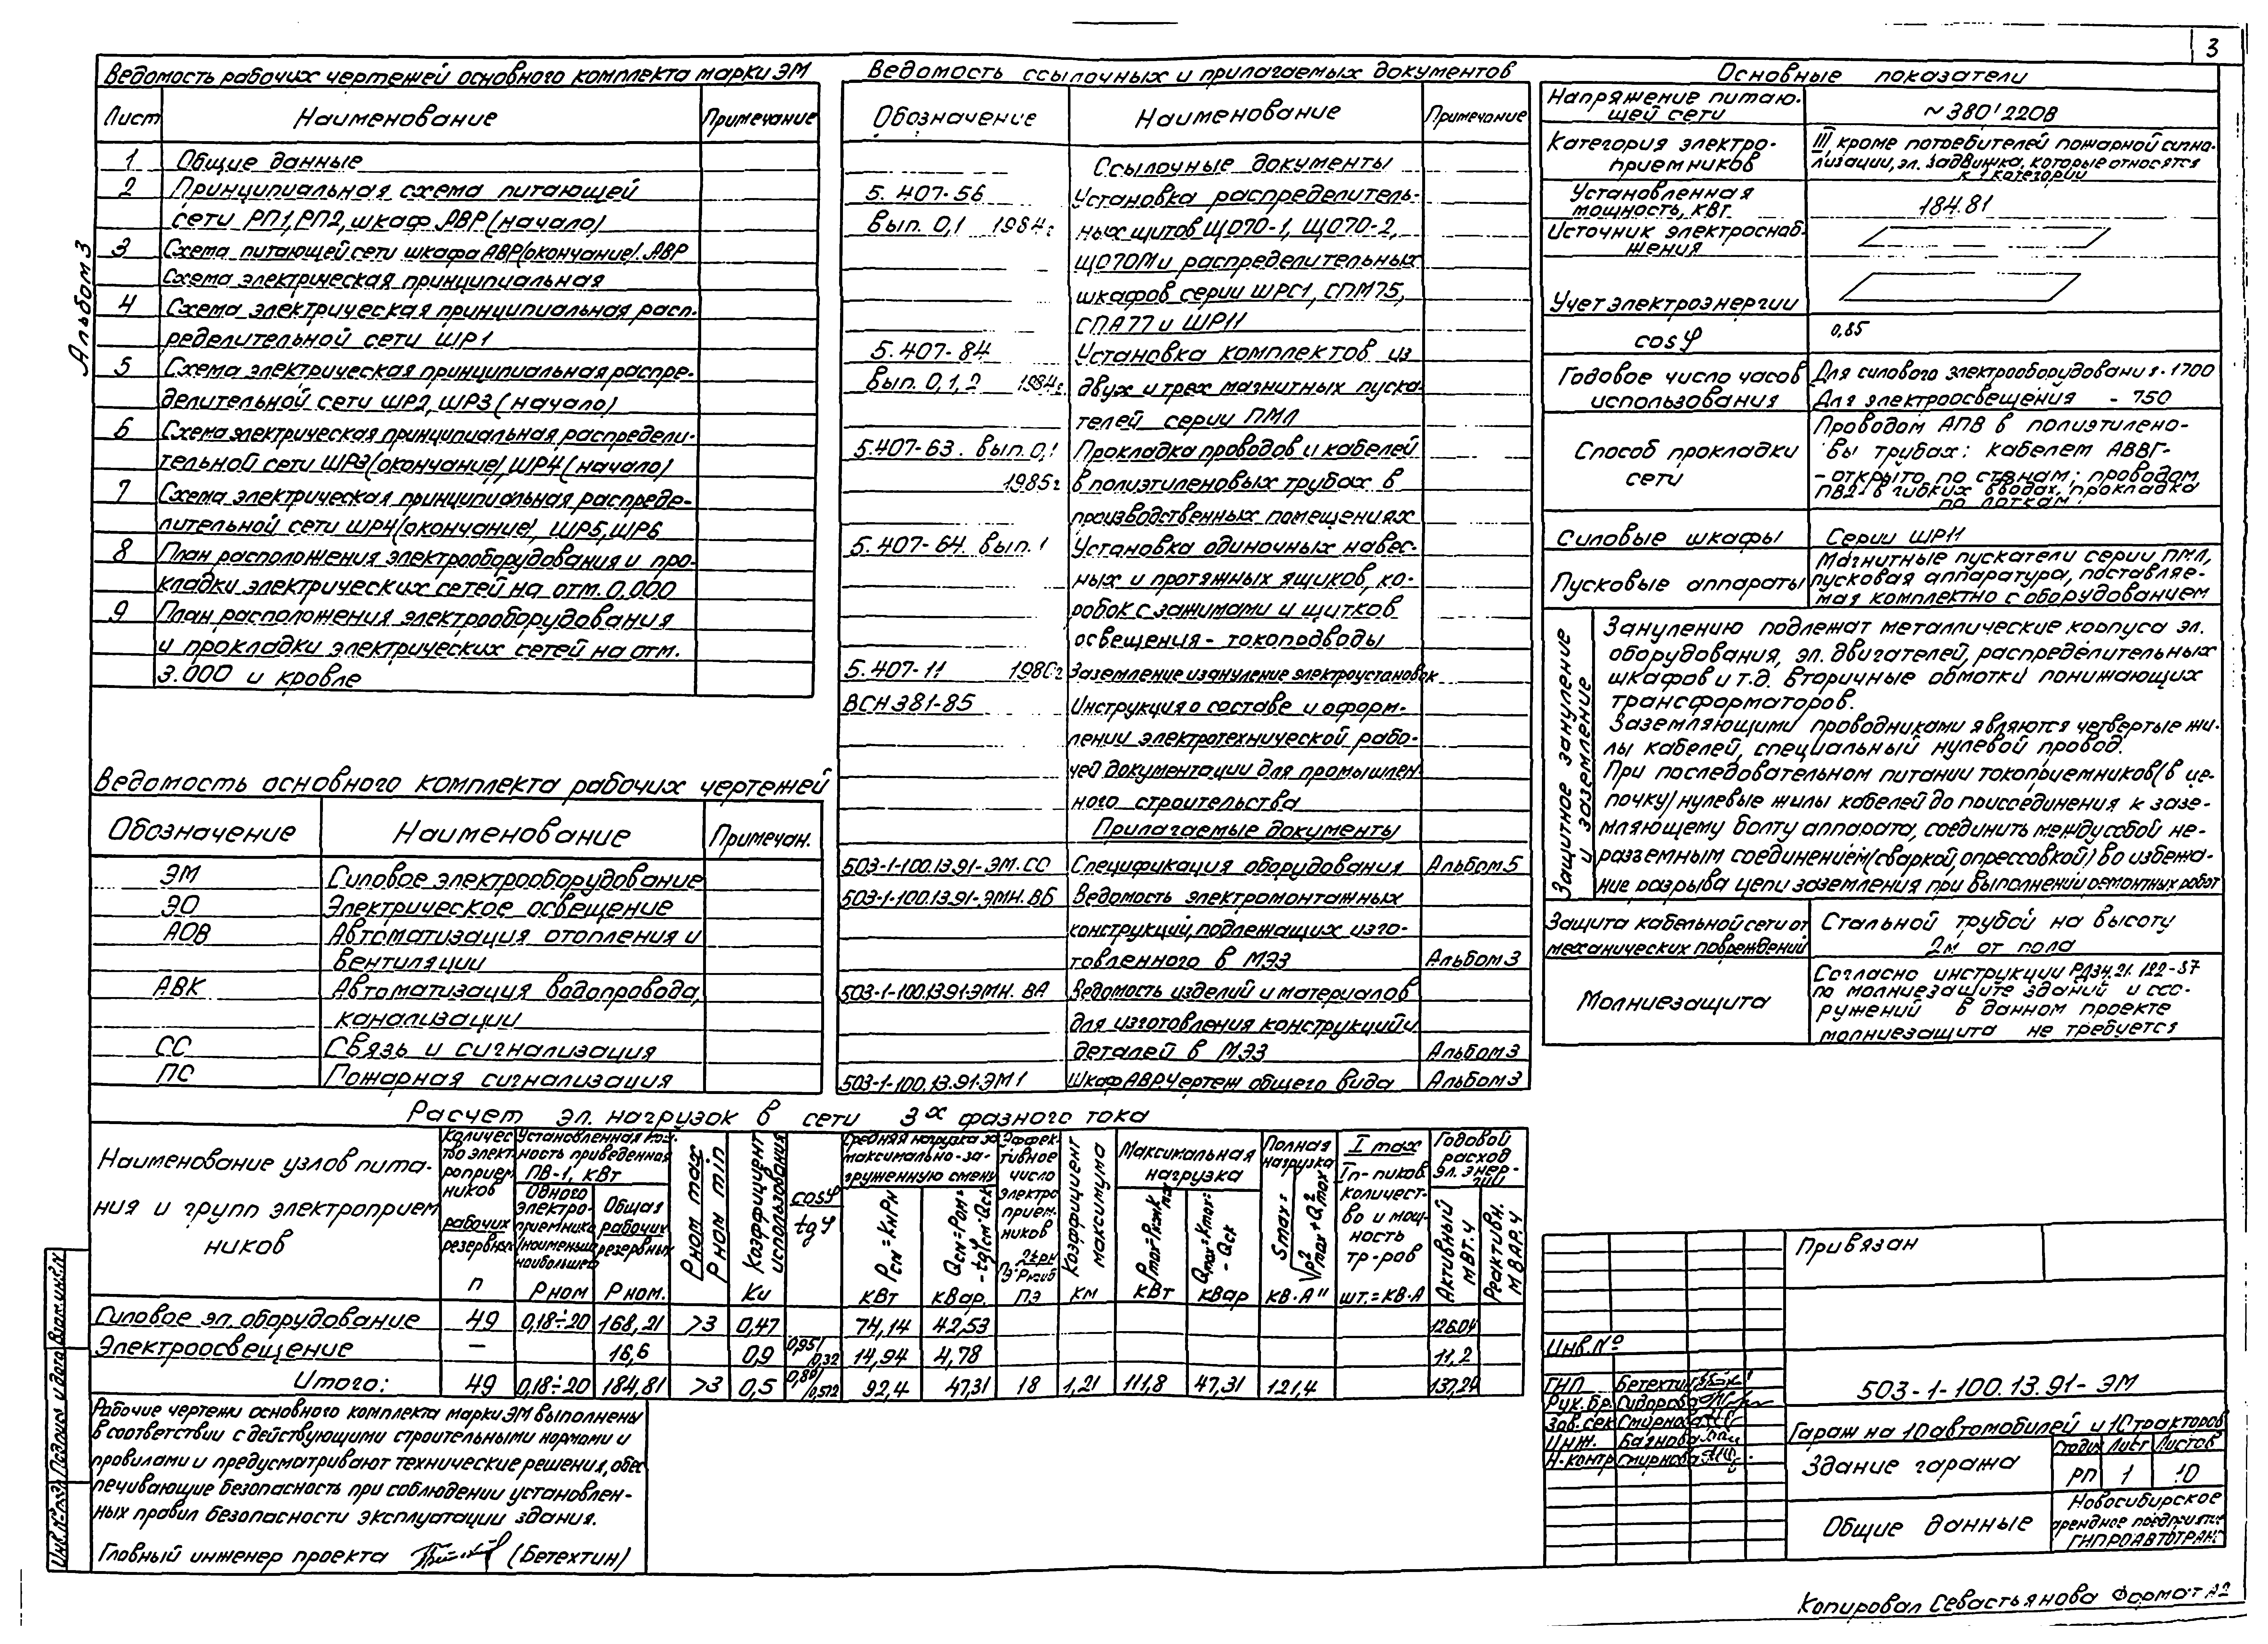 3
Альбом 3
Ведомость рабочих чертежей основного комплекта марки ЭМ
Лист Наименование Примечание
1 Общие данные
2 Принципиальная схема питающей
сети РП1, РП2, шкаф АВР (начало)
3 Схема питающей сети шкафа АВР (окончание). АВР
Схема электрическая принципиальная
4 Схема электрическая принципиальная расп-
ределительной сети ШР1
5 Схема электрическая принципиальная распре-
делительной сети ШР2, ШР3 (начало)
6 Схема электрическая принципиальная распредели-
тельной сети ШР3 (окончание), ШР4 (начало)
7 Схема электрическая принципиальная распреде-
лительной сети ШР4 (окончание), ШР5, ШР6
8 План расположения электрооборудования и про-
кладки электрических сетей на отм. 0,000
9 План расположения электрооборудования
и прокладки электрических сетей на отм.
3.000 и кровле
Ведомость основного комплекта рабочих чертежей
Обозначение Наименование Примечан.
ЭМ Силовое электрооборудование
ЭО Электрическое освещение
АОВ Автоматизация отопления и
вентиляции
АВК Автоматизация водопровода,
канализации
СС Связь и сигнализация
ПС Пожарная сигнализация
Ведомость ссылочных и прилагаемых документов
Обозначение Наименование Примечание
Ссылочные документы
5.407-56 Установка распределитель-
Вып. 0,1 1984г ных щитов ЩО70-1, ЩО70-2,
ЩО70М и распределительных
шкафов серии ШРС1, СПМ75,
СПА77 и ШР11
5.407-84 Установка комплектов из
Вып. 0,1,2 1984г. двух и трех магнитных пуска-
телей серии ПМЛ
5.407-63. Вып. 0,1 Прокладка проводов и кабелей
1985г в полиэтиленовых трубах в
производственных помещениях
5.407-64 Вып. 1 Установка одиночных навес-
ных и протяжных ящиков, ко-
робок с зажимами и щитков
освещения - токоподводы
5.407-11 1980г Заземление и зануление электроустановок
ВСН 381-85 Инструкция о составе и оформ-
лении электротехнической рабо-
чей документации для промышлен
ного строительства
Прилагаемые документы
503-1-100.13.91-ЭМ.СО Спецификация оборудования Альбом 5
503-1-100.13.91-ЭМН.ВБ Ведомость электромонтажных
конструкций, подлежащих изго-
товленного в МЭЗ Альбом 3
503-1-100.13.91-ЭМН.ВА Ведомость изделий и материалов
для изготовления конструкций и
деталей в МЭЗ Альбом 3
503-1-100.13.91-ЭМ1 Шкаф АВР Чертеж общего вида Альбом 3
Основные показатели
Напряжение питаю-
щей сети ~380/220В
Категория электро-
приемников III, кроме потребителей пожарной сигна-
лизации, эл. задвижка, которые относятся
к I категории
Установленная
мощность, кВт. 184.81
Источник электроснаб-
жения
Учет электроэнергии
cosφ 0,85
Годовое число часов
использования Для силового электрооборудования - 1700
Для электроосвещения - 750
Способ прокладки
сети Проводом АПВ в полиэтилено-
вы трубах: кабелем АВВГ-
- открыто по стенам; проводом
ПВ2 в гибких вводах, прокладка
по лоткам.
Силовые шкафы Серии ШР11
Пусковые аппараты Магнитные пускатели серии ПМЛ,
пусковая аппаратура, поставляе-
мая комплектно с оборудованием
Защитное зануление
и заземление
Занулению подлежат металлические корпуса эл.
оборудования, эл. двигателей, распределительных
шкафов и т.д. вторичные обмотки понижающих
трансформаторов.
Заземляющими проводниками являются четвертые жи-
лы кабелей, специальный нулевой провод.
При последовательном питании токоприемников (в це-
почку) нулевые жилы кабелей до присоединения к зазе-
мляющему болту аппарата, соединить между собой не-
разъемным соединением (сваркой, опрессовкой) во избежа-
ние разрыва цепи заземления при выполнении ремонтных работ
Защита кабельной сети от
механических повреждений Стальной трубой на высоту
2м от пола
Молниезащита Согласно инструкции РД34.21.122-87
по молниезащите зданий и соо-
ружений в данном проекте
молниезащита не требуется
Расчет эл. нагрузок в сети 3х фазного тока
Наименование узлов пита-
ния и групп электроприем
ников
Количес
тво элект
роприем
ников
рабочих
резервных
n
Установленная мощ.
ность приведенная
ПВ-1, кВт
Одного
электро-
приемника
(наименьш
наибольшего
Рном
Общая
рабочих
резервных
Рном.
Рном max
Рном min
Коэффициент
использования
Ки
cosφ
tgφ
Средняя нагрузка за
максимально-за-
груженную смену
Рсм = КиРн
кВт
Qсм = Рсм·
tgφсм - Qск
кВар.
Эффек-
тивное
число
электро
прием-
ников
пэ
Коэффициент
максимума
Км
Максимальная
нагрузка
кВт
кВар
Полная
нагрузка
Smax =
√P²max + Q²max
кВ·А
I max
Iп-пиков.
количест-
во и мощ-
ность
тр-ров
шт. = кВ·А
Годовой
расход
эл. энер-
гии
Активный
МВт.ч
Реактивн.
МВАР.ч
Силовое эл. оборудование 49 0,18÷20 168,21 >3 0,47 74,14 42,53 126.04
Электроосвещение — 16,6 0,9 0,95/0,32 14,94 4,78 11,2
Итого: 49 0,18÷20 184,81 >3 0,5 0,89/0,512 92,4 47,31 18 1,21 111,8 47,31 121,4 137,24
Рабочие чертежи основного комплекта марки ЭМ выполнены
в соответствии с действующими строительными нормами и
правилами и предусматривают технические решения, обес
печивающие безопасность при соблюдении установлен-
ных правил безопасности эксплуатации здания.
Главный инженер проекта (Бетехтин)
Инв. № подл. Подпись и дата Взам.инв.№
Привязан
Инв.№
ГИП Бетехтин
Рук. бр. Сидорова
Зав. сек Смирнова
Инж. Багнова
Н-контр Смирнова
503-1-100.13.91-ЭМ
Гараж на 10 автомобилей и 10 тракторов
Здание гаража
Стадия Лист Листов
РП 1 10
Общие данные
Новосибирское
арендное предприятие
ГИПРОАВТОТРАНС
Копировал Севастьянова Формат А2